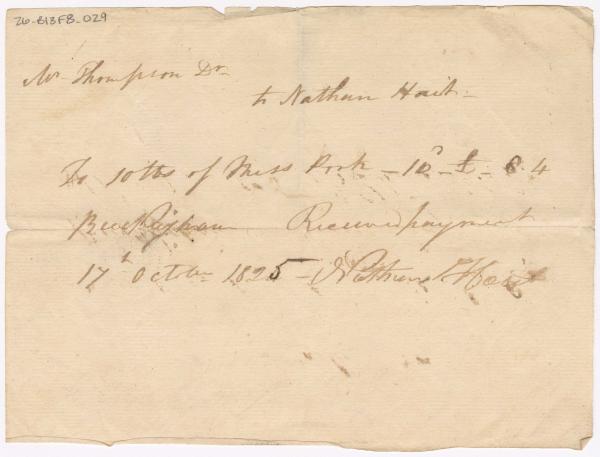 26-B13F8-029
Mr Thompson Dr
to Nathan Hait
To 10 lbs of Mess Pork - 10d - £ - 8.4
Buckingham Received payment
17th October 1825 - Nathan Hait